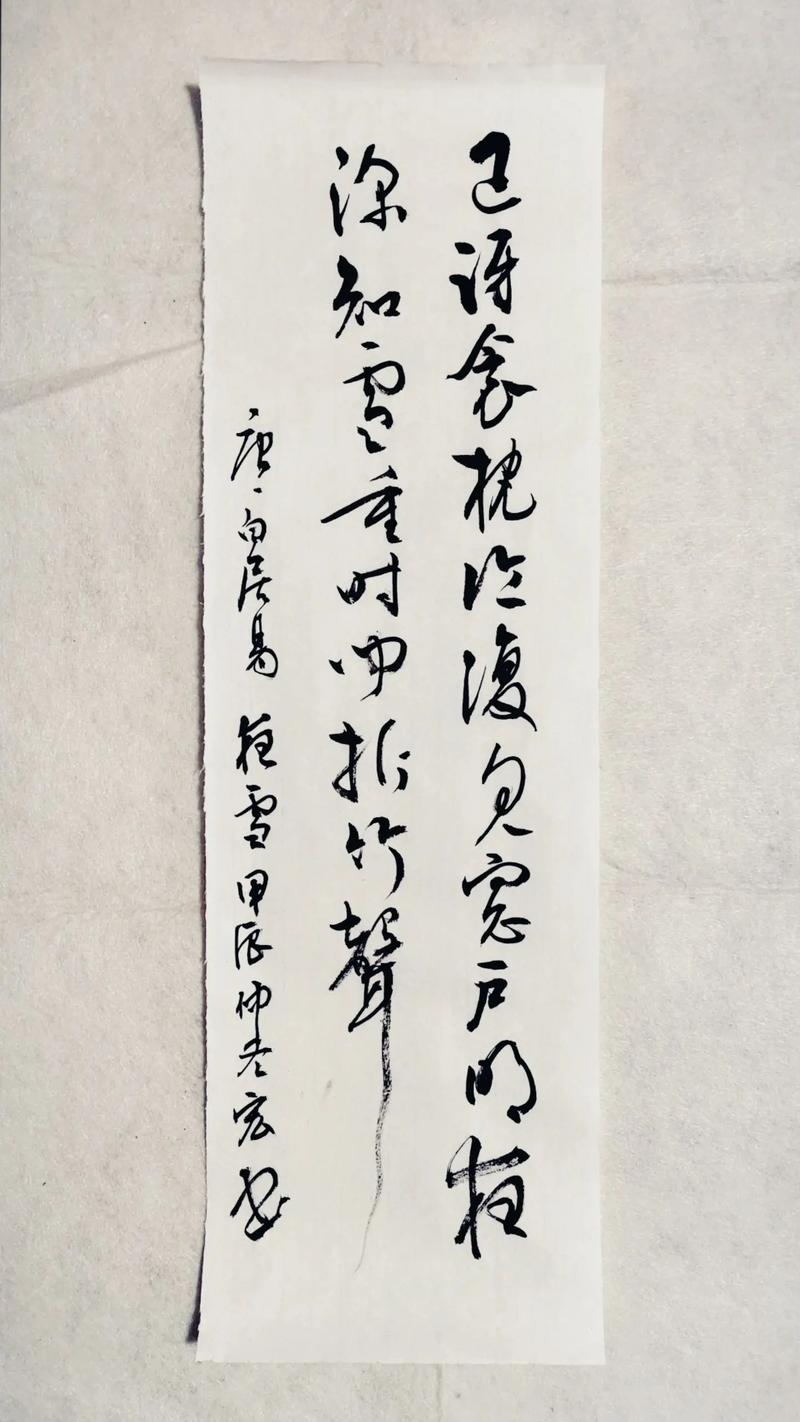 已讶衾枕冷復见窓户明夜
深知雪重时闻折竹聲
唐白居易夜雪甲辰仲冬宏书